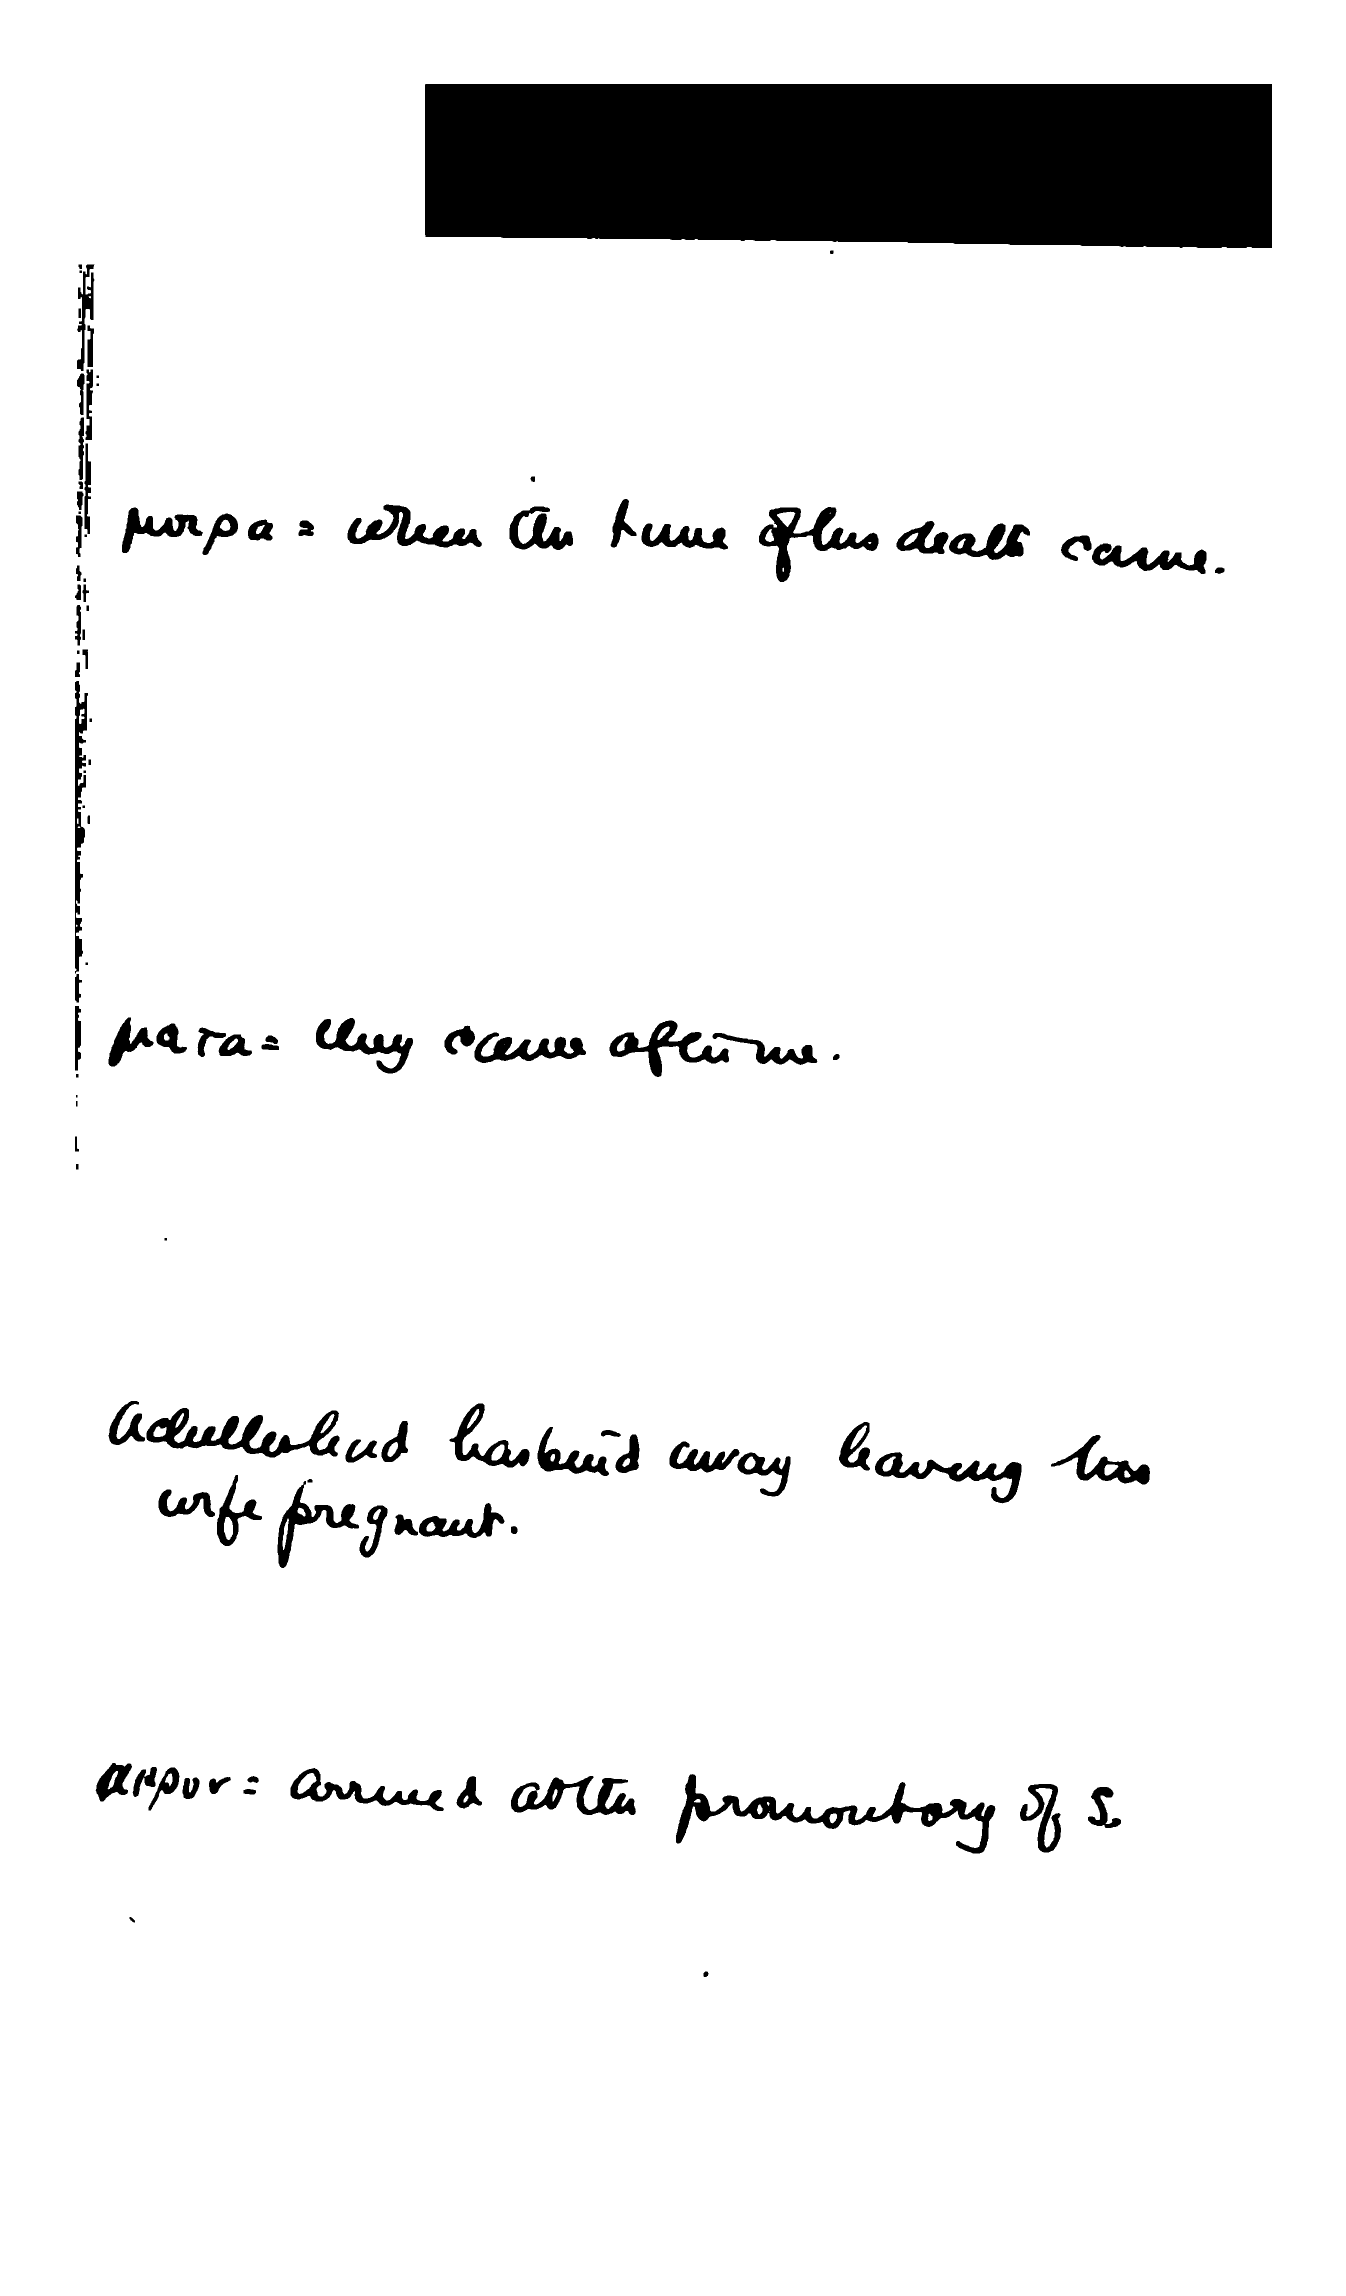 μοιρα = when the time of his death came.
μετα = they came after me.
Achilles had has been'd away leaving his
wife pregnant.
ακρον = arrived at the promontory of S.